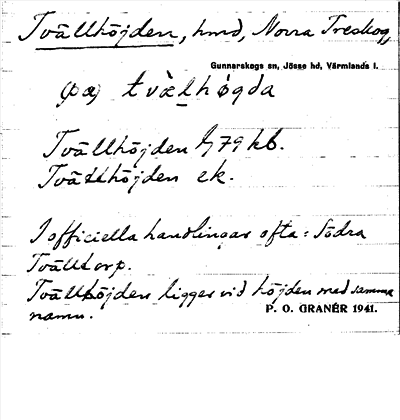 Tvällhöjden, hmd, Norra Treskog,
Gunnarskogs sn, Jösse hd, Värmlands l.
(pœ) tvælhøgda
Tvällhöjden G 79 kb.
Tvällhöjden ek.
I officiella handlingar ofta: Södra
Tvälltorp.
Tvällhöjden ligger vid höjden med samma
namn.
P. O. GRANÉR 1941.